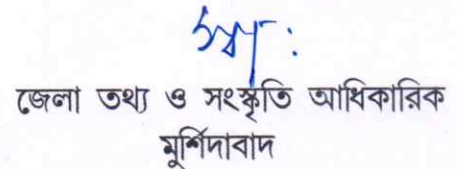 স্বাঃ :
জেলা তথ্য ও সংস্কৃতি আধিকারিক
মুর্শিদাবাদ